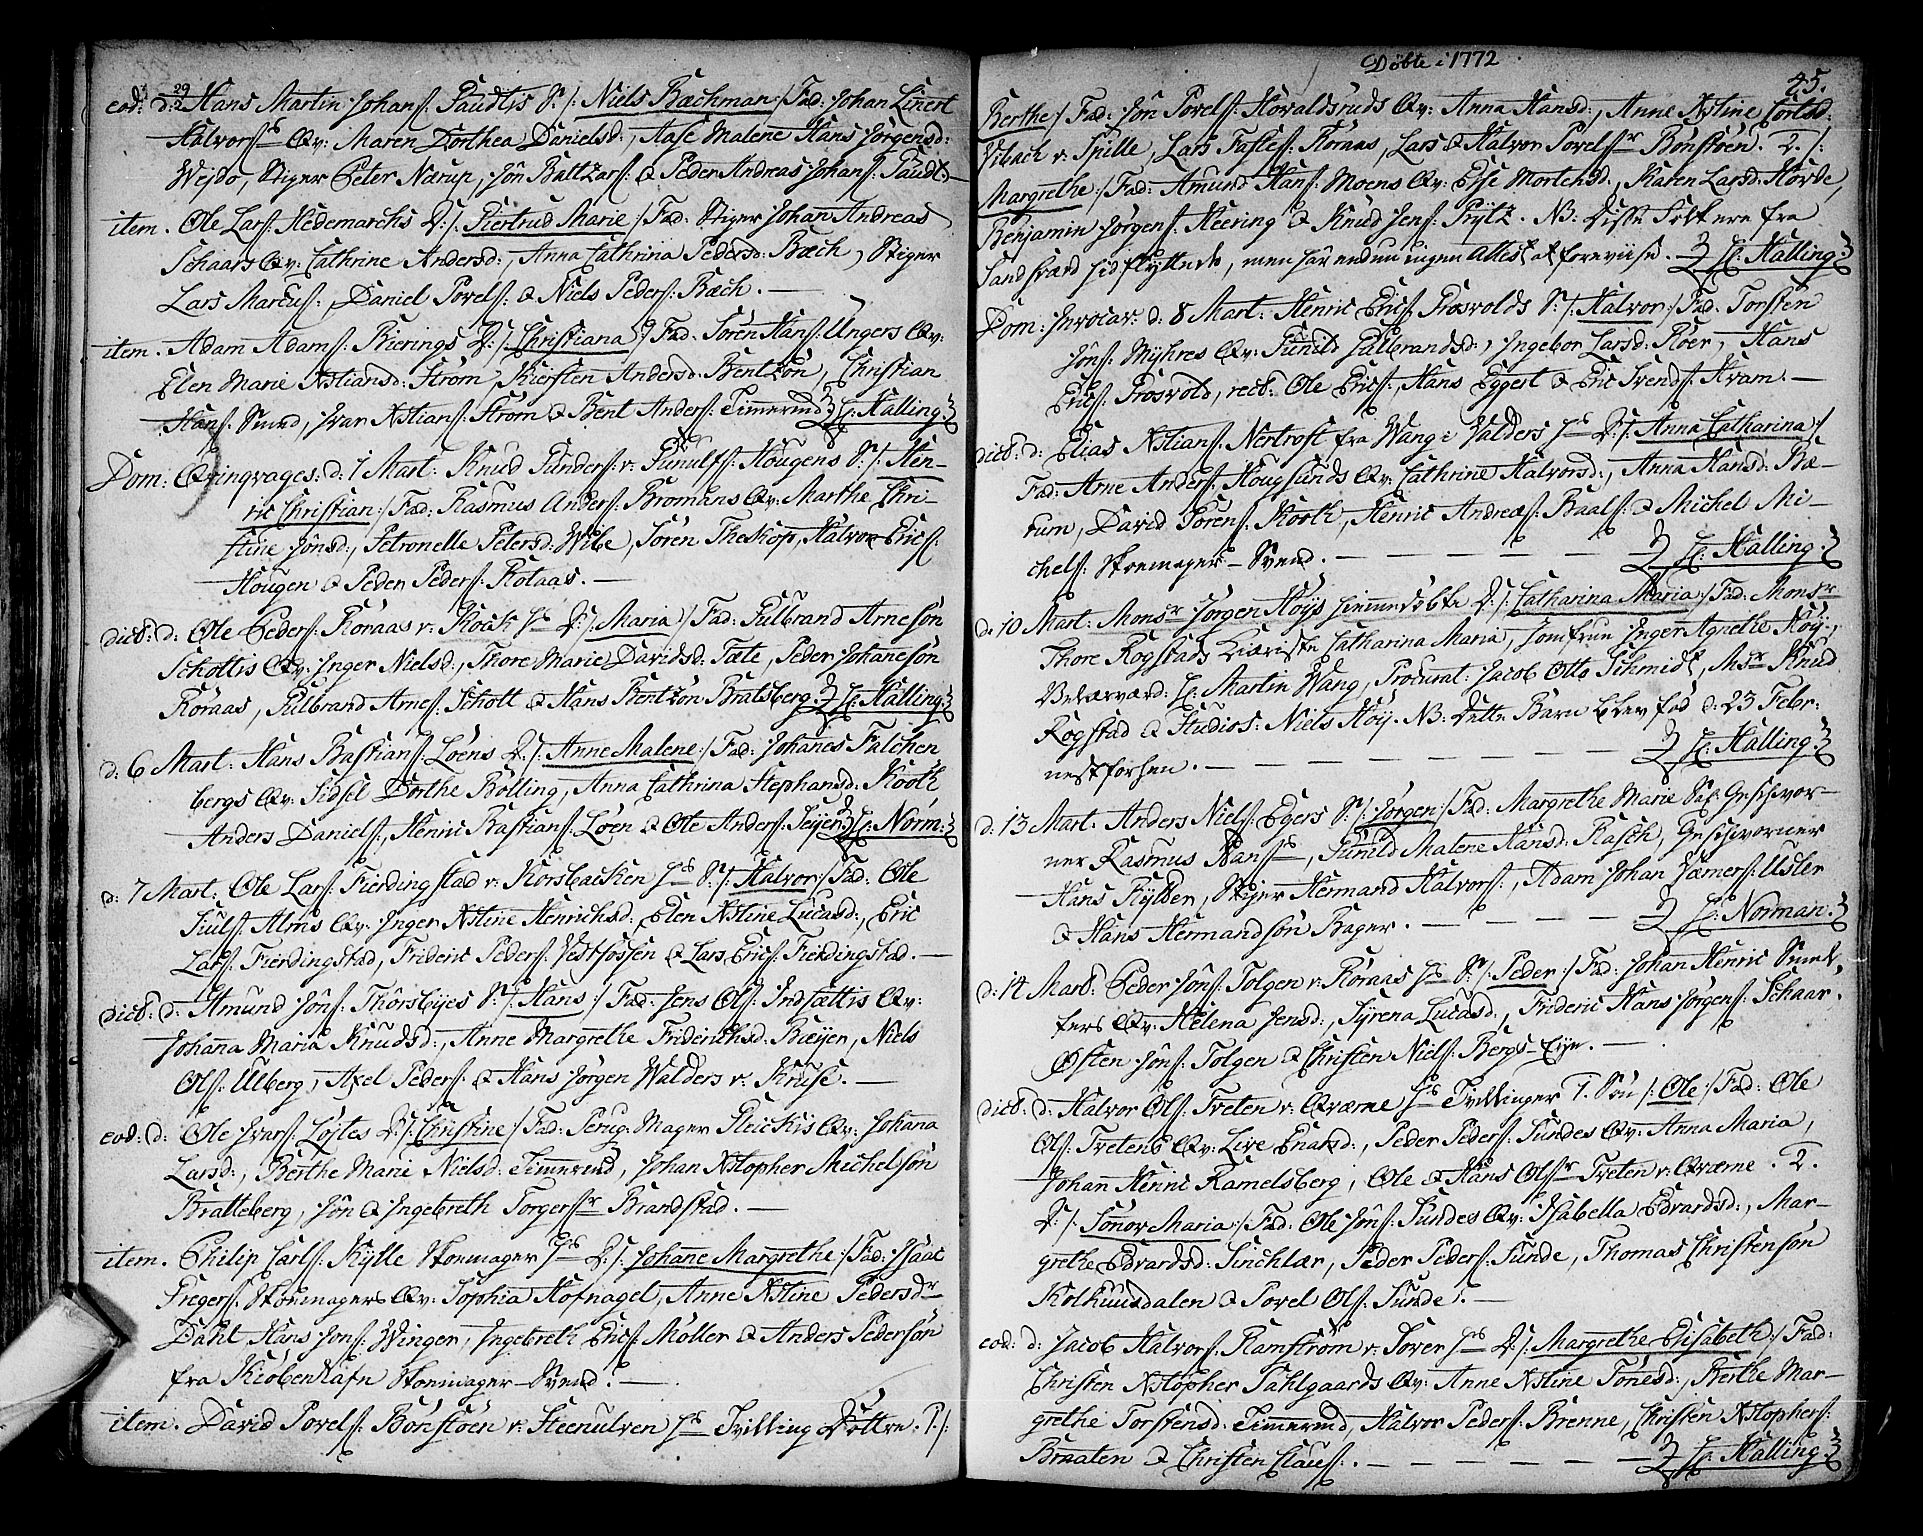 eod: d: 29/2 Hans Martin Johans: Paudtis S: /: Niels Bæchman :/ Fad: Johan Linert
Halvors: Qv: Maren Dorthea Danielsd:, Aase Malene Hans Jørgensd:
Wejdo, Stiger Peter Nærup, Jôn Baltzars: & Peder Andreas Johans: Paudt. —
item. Ole Lars: Hedemarchs D: /: Giertrud Marie :/ Fad: Stiger Johan Andreas
Schaars Qv: Cathrine Andersd:, Anna Cathrina Pedersd: Bæch, Stiger
Lars Marcus:, Daniel Povels: & Niels Peders: Bæch. —
item. Adam Adams: Bierings D: /: Christiana :/ Fad: Søren Hans: Ungers Qv:
Elen Marie Xstiansd: Strøm, Kiersten Andersd: Bentzôn, Christian
Hans: Smed, Ivar Xstians: Strøm & Bent Anders: Timmermd. H: Halling.
Dom: Qvinqvages: d: 1 Mart: Knud Gunders: v: Gunulfs: Hougens S: /: Hen-
ric Christian :/ Fad: Rasmus Anders: Bromans Qv: Marthe Chri-
stine Jônsd:, Petronelle Petersd: Wibe, Søren Theskop, Halvor Erics:
Hougen & Peder Peders: Kolaas. —
dict: d: Ole Peders: Røraas v: Kock D: /: Maria :/ Fad: Gulbrand Arnesôn
Schottis Qv: Inger Nielsd:, Thore Marie Davidsd: Tæte, Peder Johanesôn
Røraas, Gulbrand Arnes: Schott & Hans Bentzôn Bratsberg. H: Halling.
d: 6 Mart: Hans Bastians: Løens D: /: Anne Malene :/ Fad: Johanes Falchen
bergs Qv: Sidsel Dorthe Bølling, Anna Cathrina Stephansd: Kooth
Anders Daniels:, Henric Bastians: Løen & Ole Anders: Seyer. H: Norm:
d: 7 Mart: Ole Lars: Fierdingstad v: Korsbacken S: /: Halvor :/ Fad: Ole
Juls: Alms Qv: Inger Xstine Henrichsd:, Elen Xstine Lucasd:, Eric
Lars: Fierdingstad, Frideric Peders: Vestfossen & Lars Erics: Fierdingstad. —
dict: d: Amund Jôns: Thorsbyes S: /: Hans :/ Fad: Jens Ols: Indsættis Qv:
Johana Maria Knudsd:, Anne Margrethe Friderichsd: Bæyer, Niels
Ols: Ulberg, Axel Peders: & Hans Jørgen Walders v: Kruse. —
eod: d: Ole Ivars: Løjtes D: /: Christine :/ Fad: Perug: Mager Gleichis Qv: Johana
Larsd:, Berthe Marie Nielsd: Timmermd, Johan Xstopher Michelsôn
Bratteberg, Jôn & Ingebreth Torgers: Brandstad. —
item. Philip Carls: Kylle Skomager D: /: Johane Margrethe :/ Fad: Isaac
Gregers: Skomagers Qv: Sophia Hofnagel, Anne Xstine Pedersdr
Dahl, Hans Jons: Winger, Ingebreth Erics: Møller & Anders Pedersôn
fra Kiøbenhafn Skomager-Svend. —
item. David Povels: Bønstøen v: Steenulven Tvilling Døttre: 1 /:
Døbte i 1772
45.
Berthe :/ Fad: Jôn Povels: Hovaldsruds Qv: Anna Hansd:, Anne Xstine
Vibach v: Spille, Lars Røraas, Lars & Halvor Povels: Bønstøen. 2. /:
Margrethe :/ Fad: Amund Hans: Moens Qv: Else Mortensd:, Karen Larsd: Horde,
Benjamin Jørgens: Heering & Knud Jens: Prytz. NB: Disse Folk ere fra
Sandsværd hidflyttede, men har endnu ingen Attest at foreviise. H: Halling.
Dom: Invocav: d: 8 Mart: Henric Erics: Fosvolds S: /: Halvor :/ Fad: Torsten
Jôns: Myhres Qv: Gunild Gulbrandsd:, Ingebor Larsd: Røer, Hans
Erics: Fosvold, rect: Ole Erics:, Hans Eggert & Eric Svends: Kvam. —
dict: d: Elias Xstians: Nertrost fra Wang i Valders D: /: Anna Catharina :/
Fad: Arne Anders: Hougsunds Qv: Cathrine Halvorsd:, Anna Hansd: Bæ-
rum, David Sørens: Kooth, Henric Andreæs: Baals: & Michel Mi-
chels: Skomager-Svend. — H: Halling.
d: 10 Mart: Monsr Jørgen Høys hiemmedøbte D: /: Catharina Maria :/ Fad: Monsr
Thore Rogstads Kiæreste Catharina Maria, Jomfrue Inger Agnethe Høy,
Velærværd: H: Martin Wang, Procurat: Jacob Otto Schmidt, Msr Knud
Rogstad & Studios: Niels Høy. NB: Dette Barn blev fød d: 23 Febr:
nestforhen. — H: Halling.
d: 13 Mart: Anders Niels: Egers S: /: Jørgen :/ Fad: Margrethe Marie Geschvor-
ner Rasmus Hans:, Gunild Malene Hansd: Rasch, Geschvorner
Hans Kylder, Stiger Hermand Halvors:, Adam Johan Jæmers: Usler
& Hans Hermandsôn Bager. — H: Norman.
d: 14 Mart: Peder Jôns: Tolgen v: Røraas S: /: Peder :/ Fad: Johan Henric
fers Qv: Helena Jensd:, Tyrena Lucasd:, Frideric Hans Jørgens: Schaar,
Østen Jôns: Tolgen & Christen Niels: Bergs-Eye. —
dict: d: Halvor Ols: Tveten v: Qværne Tvillinger 1. Søn /: Ole :/ Fad: Ole
Ols: Tvetens Qv: Live Enarsd:, Peder Peders: Sundes Qv: Anna Maria,
Johan Henric Ramelsberg, Ole & Hans Ols: Tveten v: Qværne. 2.
D: /: Sônov Maria :/ Fad: Ole Jôns: Sundes Qv: Isabella Edvardsd:, Mar-
grethe Edvardsd: Sinchlær, Peder Peders: Sunde, Thomas Christensôn
Kolkuusdalen & Povel Ols: Sunde. —
eod: d: Jacob Halvors: Ramstrøm v: Sover D: /: Margrethe Elisabeth :/ Fad:
Christen Xstopher Dahlgaards Qv: Anne Xstine Tônesd:, Berthe Mar-
grethe Torstensd: Timmermd, Halvor Peders: Brenne, Christen Xstophers:
Braaten & Christen Claus:. — H: Halling.